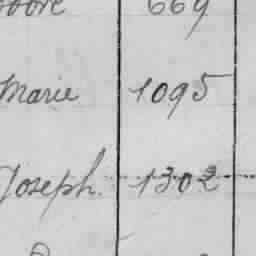 669
Marie 1095
Joseph. 1302